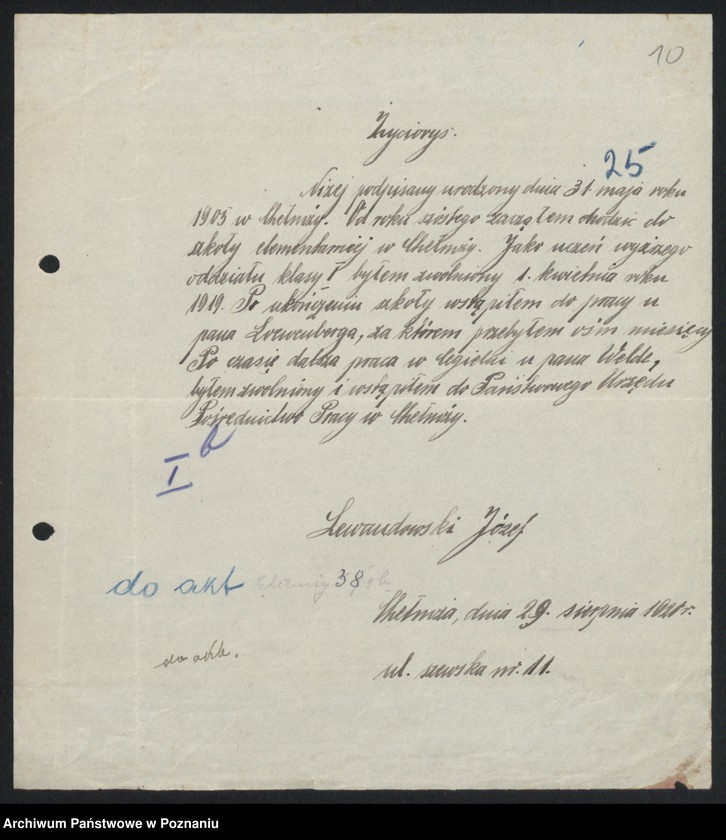 10
Życiorys.
25
Niżej podpisany urodzony dnia 31. maja roku
1905 w Chełmży. Od roku szóstego zacząłem chodzić do
szkoły elementarnej w Chełmży. Jako uczeń wyższego
oddziału klasy I byłem zwolniony 1. kwietnia roku
1919. Po ukończeniu szkoły wstąpiłem do pracy u
pana Loewenberga, za którem przebyłem ośm miesięcy
Po czasie dalsza praca w cegielni u pana Welde,
byłem zwolniony i wstąpiłem do Państwowego Urzędu
Pośrednictwa Pracy w Chełmży.
I b
Lewandowski Józef
do akt 38
Chełmża, dnia 29. sierpnia 1921 r.
do akt.
ul. szewska nr. 11.
Archiwum Państwowe w Poznaniu